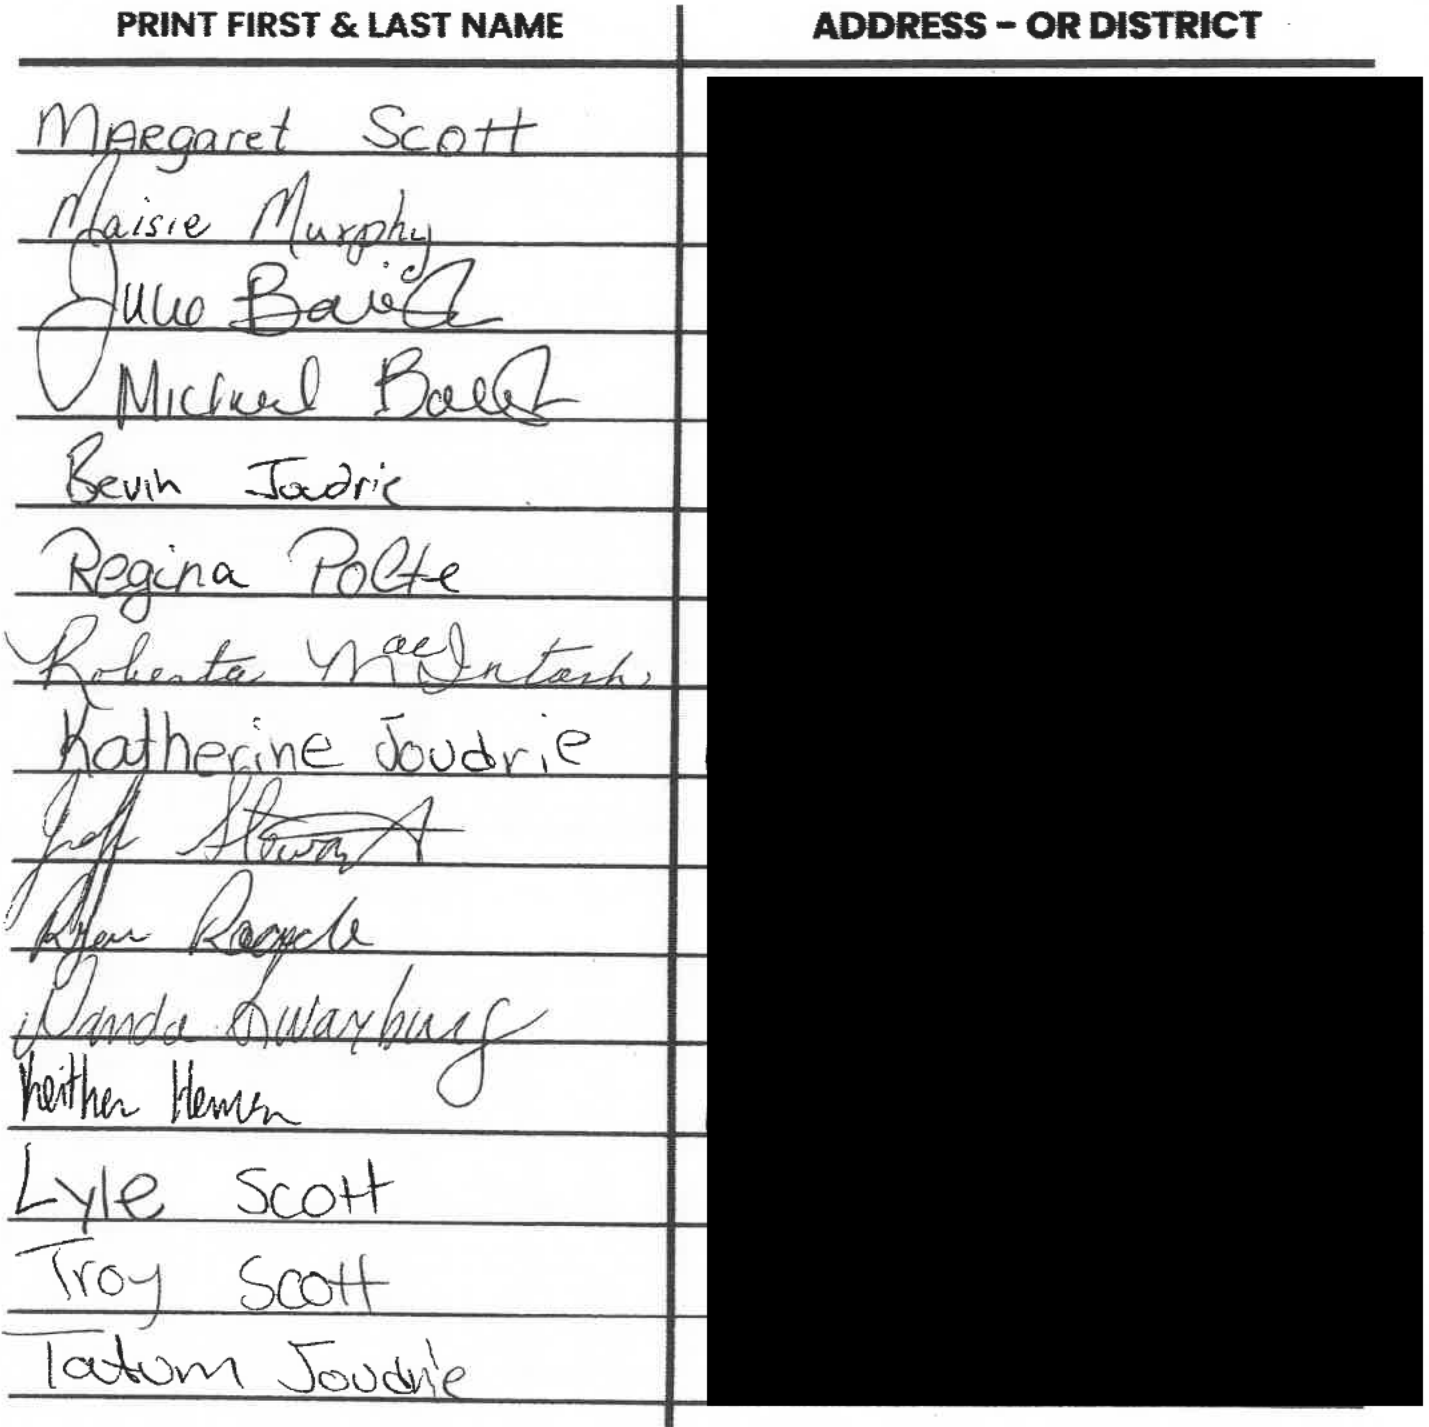 PRINT FIRST & LAST NAME ADDRESS - OR DISTRICT
Margaret Scott
Maisie Murphy
Julie
Michael
Bevin Joudrie
Regina Polte
Roberta MacIntosh
Katherine Joudrie
Geoff Stewart
Ryan
Wanda Swarzburg
Keither
Lyle Scott
Troy Scott
Tatum Joudrie